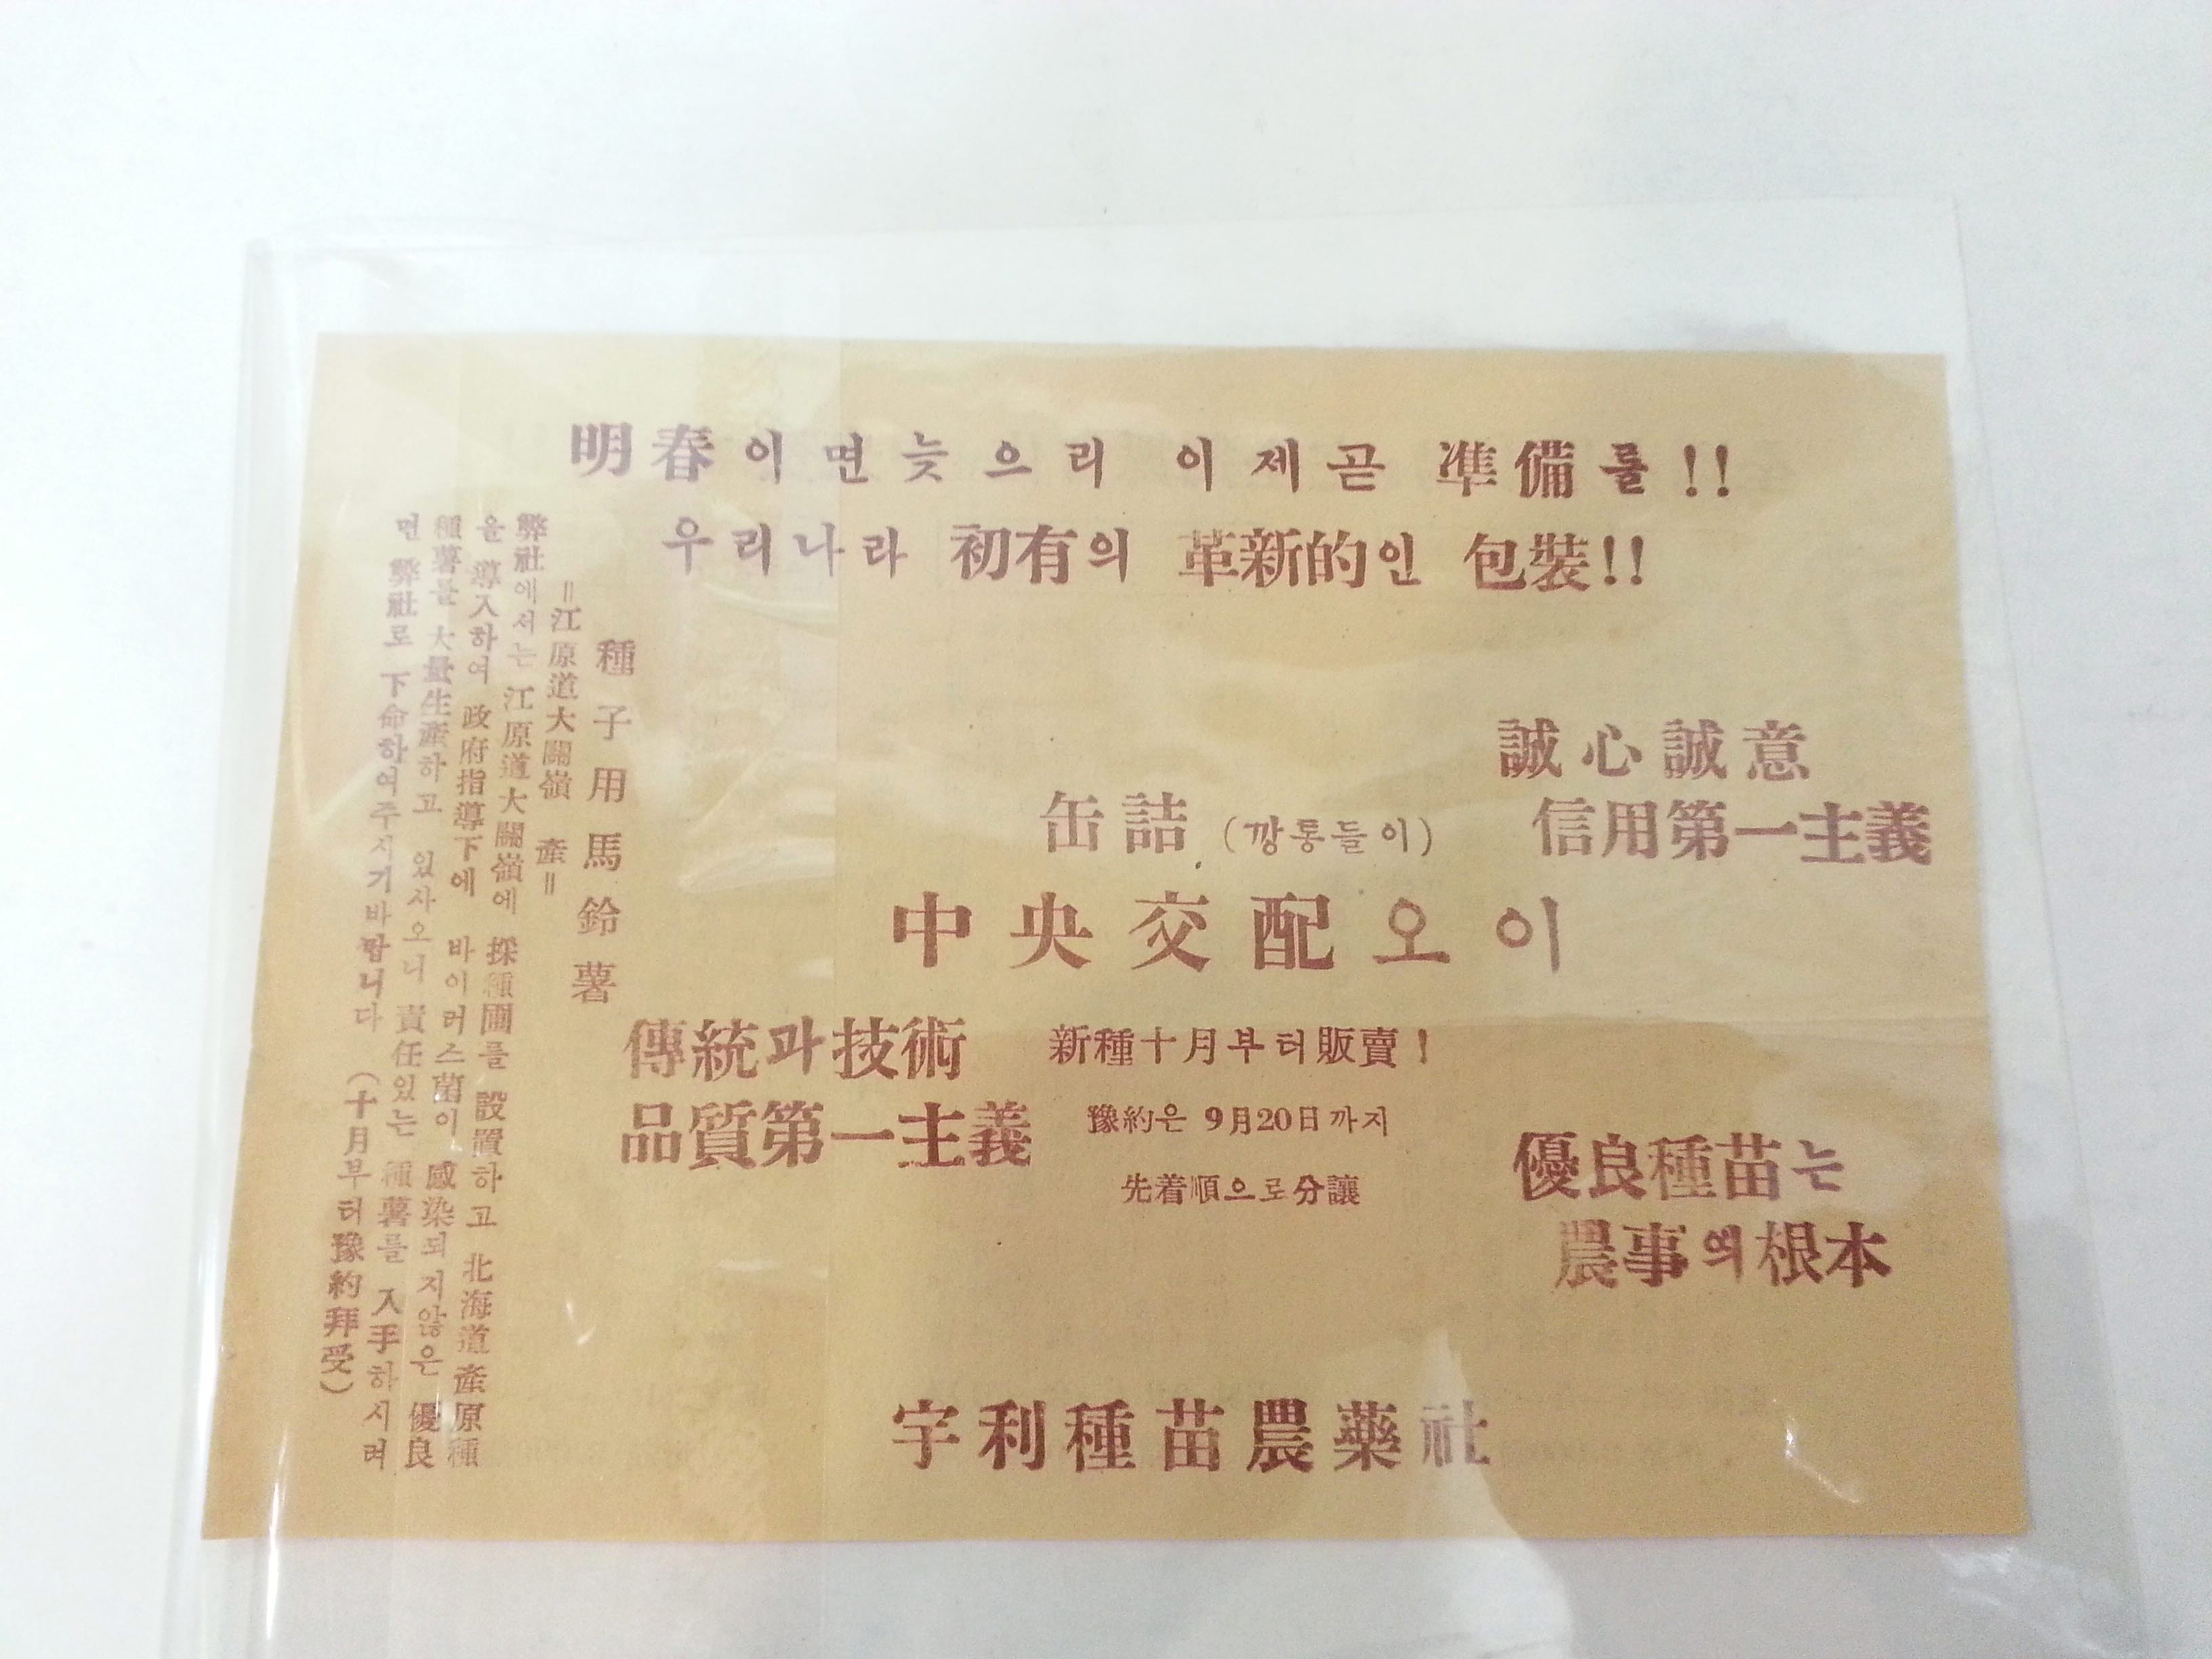 明春이면늦으리 이제곧 準備를!!
우리나라 初有의 革新的인 包裝!!
誠心誠意
信用第一主義
缶詰 (깡통들이)
中央交配오이
傳統과技術
品質第一主義
新種十月부터販賣!
豫約은 9月20日까지
先着順으로分讓
優良種苗는
農事의根本
宇利種苗農藥社
種子用馬鈴薯
=江原道大關嶺 產=
弊社에서는 江原道大關嶺에 採種圃를 設置하고 北海道產原種
을 導入하여 政府指導下에 바이러스菌이 感染되지않은 優良
種薯를 大量生產하고 있사오니 責任있는 種薯를 入手하시려
면 弊社로 下命하여주시기바랍니다 (十月부터豫約拜受)